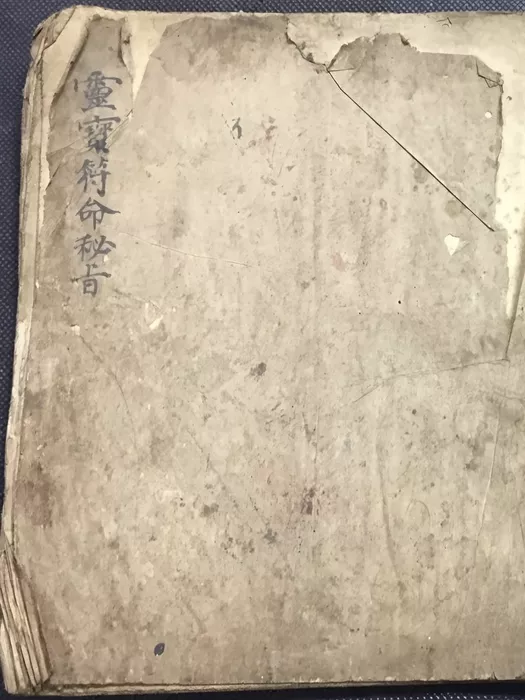 靈寳符命秘旨